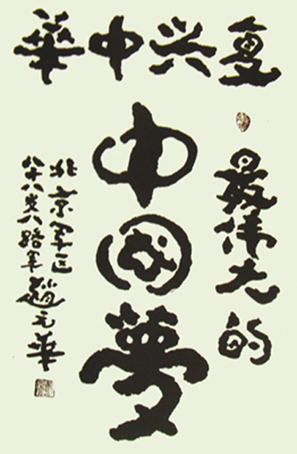 复兴中華
最伟大的
中國夢
北京军区
八十八岁八路军趙元華